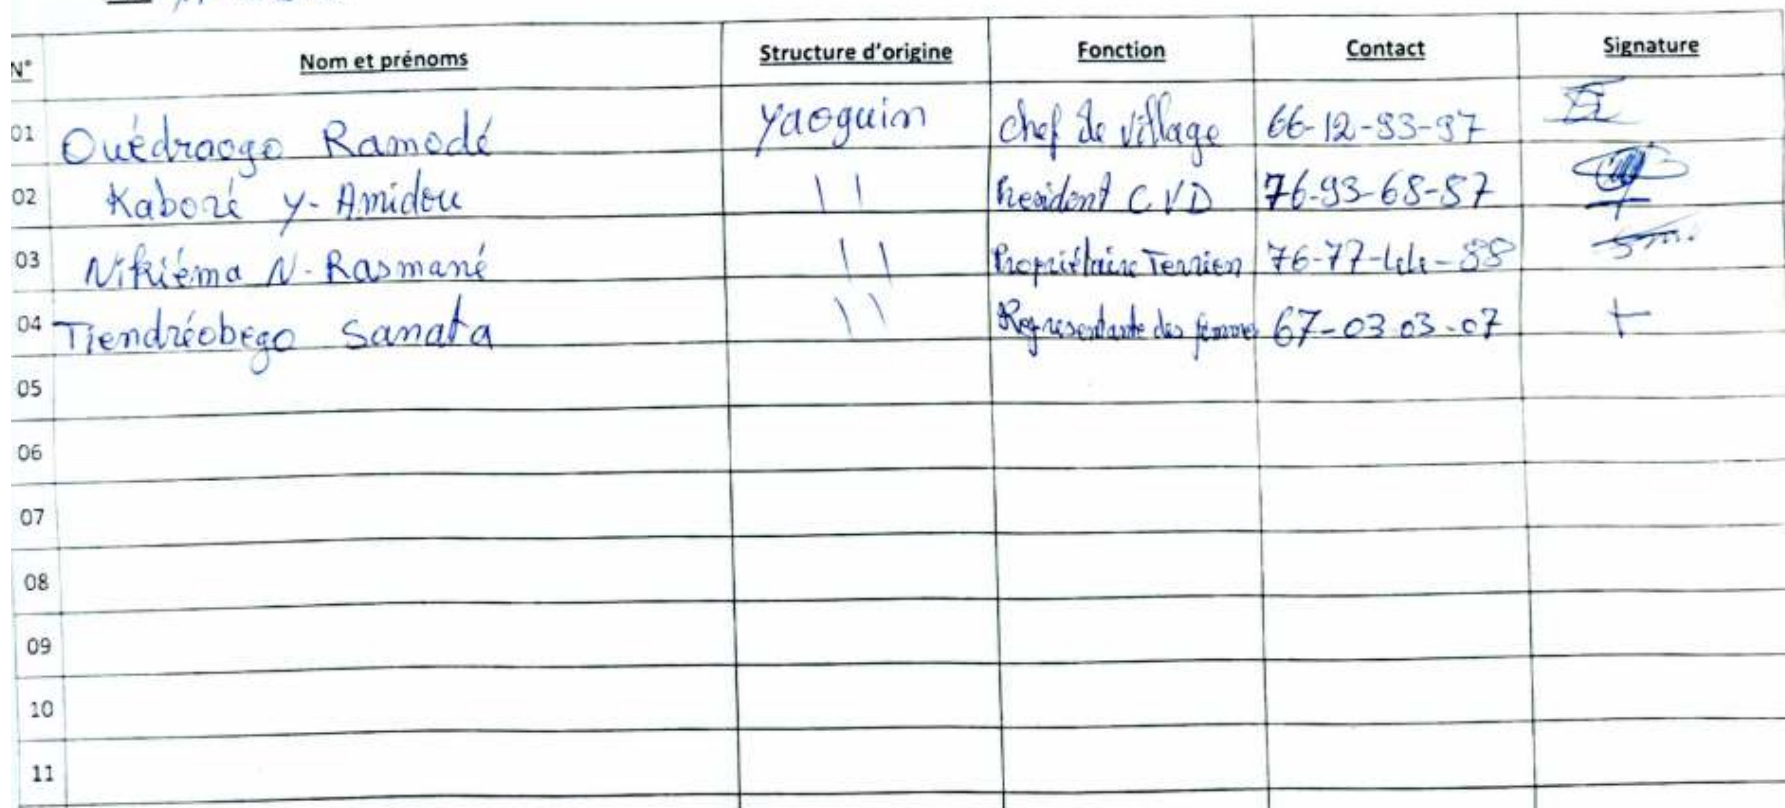 N° Nom et prénoms Structure d'origine Fonction Contact Signature
01 Ouédraogo Ramodé Yaoguin chef de village 66-12-93-97
02 Kaboré Y-Amidou \\ Président C.VD 76-93-68-57
03 Nikiéma N-Rasmané \\ Propriétaire Terrien 76-77-44-88
04 Tiendréobego Sanata \\ Représentante des femmes 67-03-03-07 +
05
06
07
08
09
10
11